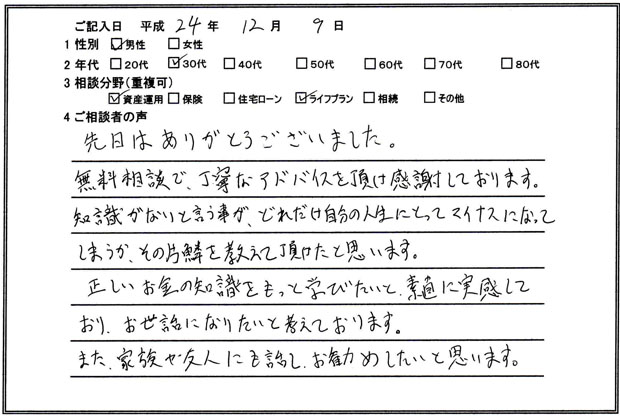 ご記入日 平成 24 年 12 月 9 日
1 性別 ☑男性 □女性
2 年代 □20代 ☑30代 □40代 □50代 □60代 □70代 □80代
3 相談分野(重複可)
☑資産運用 □保険 □住宅ローン ☑ライフプラン □相続 □その他
4 ご相談者の声
先日はありがとうございました。
無料相談で、丁寧なアドバイスを頂け感謝しております。
知識がないと言う事が、どれだけ自分の人生にとってマイナスになって
しまうか、その片鱗を教えて頂けたと思います。
正しいお金の知識をもっと学びたいと、素直に実感して
おり、お世話になりたいと考えております。
また、家族や友人にも話し、お勧めしたいと思います。